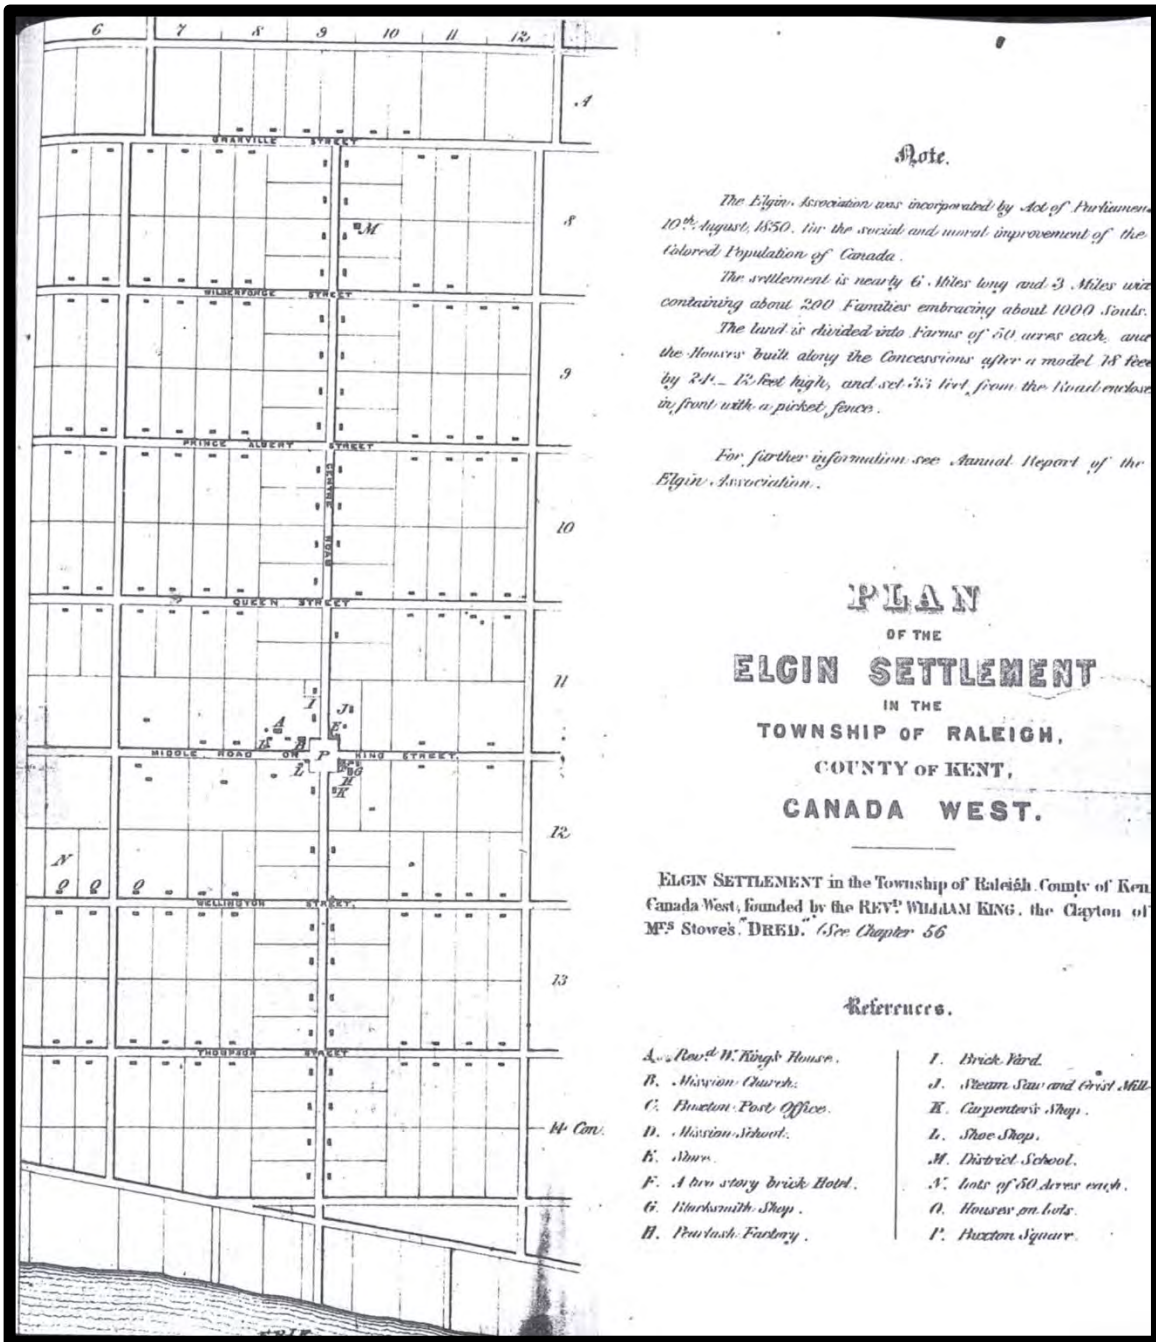 6 7 8 9 10 11 12
A
GRANVILLE STREET
8
M
WILBERFORCE STREET
9
PRINCE ALBERT STREET
CENTRE ROAD
10
QUEEN STREET
11
I
J
A
E
B
MIDDLE ROAD OR KING STREET.
P
L
G
H
K
12
N
O O O
WELLINGTON STREET.
13
THOMPSON STREET
14 Con.
ERIE
Note.
The Elgin Association was incorporated by Act of Parliamen
10th August, 1850. for the social and moral improvement of the
Colored Population of Canada.
The settlement is nearly 6 Miles long and 3 Miles wid
containing about 200 Families embracing about 1000 Souls.
The land is divided into Farms of 50 acres each, and
the Houses built along the Concessions after a model 18 fee
by 24 _ 12 feet high, and set 33 feet from the Road enclose
in front with a picket fence.
For further information see Annual Report of the
Elgin Association.
PLAN
OF THE
ELGIN SETTLEMENT
IN THE
TOWNSHIP OF RALEIGH,
COUNTY OF KENT,
CANADA WEST.
ELGIN SETTLEMENT in the Township of Raleigh. County of Ken
Canada West, founded by the REVD WILLIAM KING. the Clayton of
Mrs Stowe's "DRED." (See Chapter 56
References.
A. Revd W. King's House.
B. Mission Church.
C. Buxton Post Office.
D. Mission School.
E. Store.
F. A two story brick Hotel.
G. Blacksmith Shop.
H. Pearlash Factory.
I. Brick Yard.
J. Steam Saw and Grist Mill
K. Carpenter's Shop.
L. Shoe Shop.
M. District School.
N. Lots of 50 Acres each.
O. Houses on Lots.
P. Buxton Square.